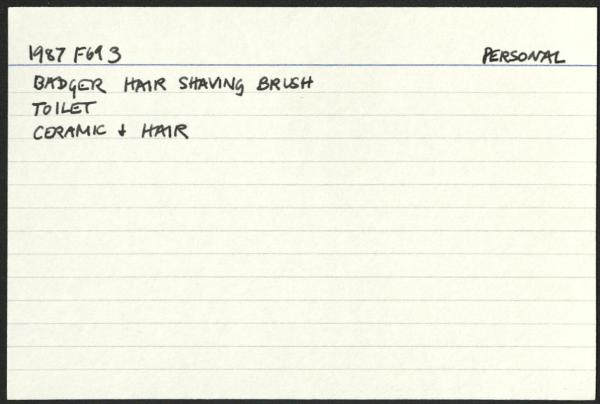 1987 F69 3 PERSONAL
BADGER HAIR SHAVING BRUSH
TOILET
CERAMIC & HAIR